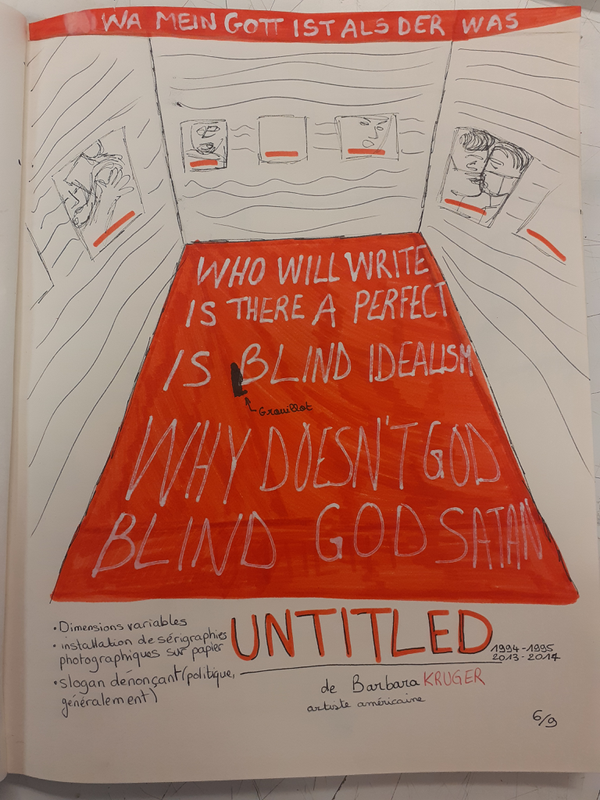 WA MEIN GOTT IST ALS DER WAS
WHO WILL WRITE
IS THERE A PERFECT
IS BLIND IDEALISM
WHY DOESN'T GOD
BLIND GOD SATAN
UNTITLED
1994-1995
2013-2014
• Dimensions variables
• installation de sérigraphies
photographiques sur papier
• slogan dénonçant (politique,
généralement)
de Barbara KRUGER
artiste américaine
6/9